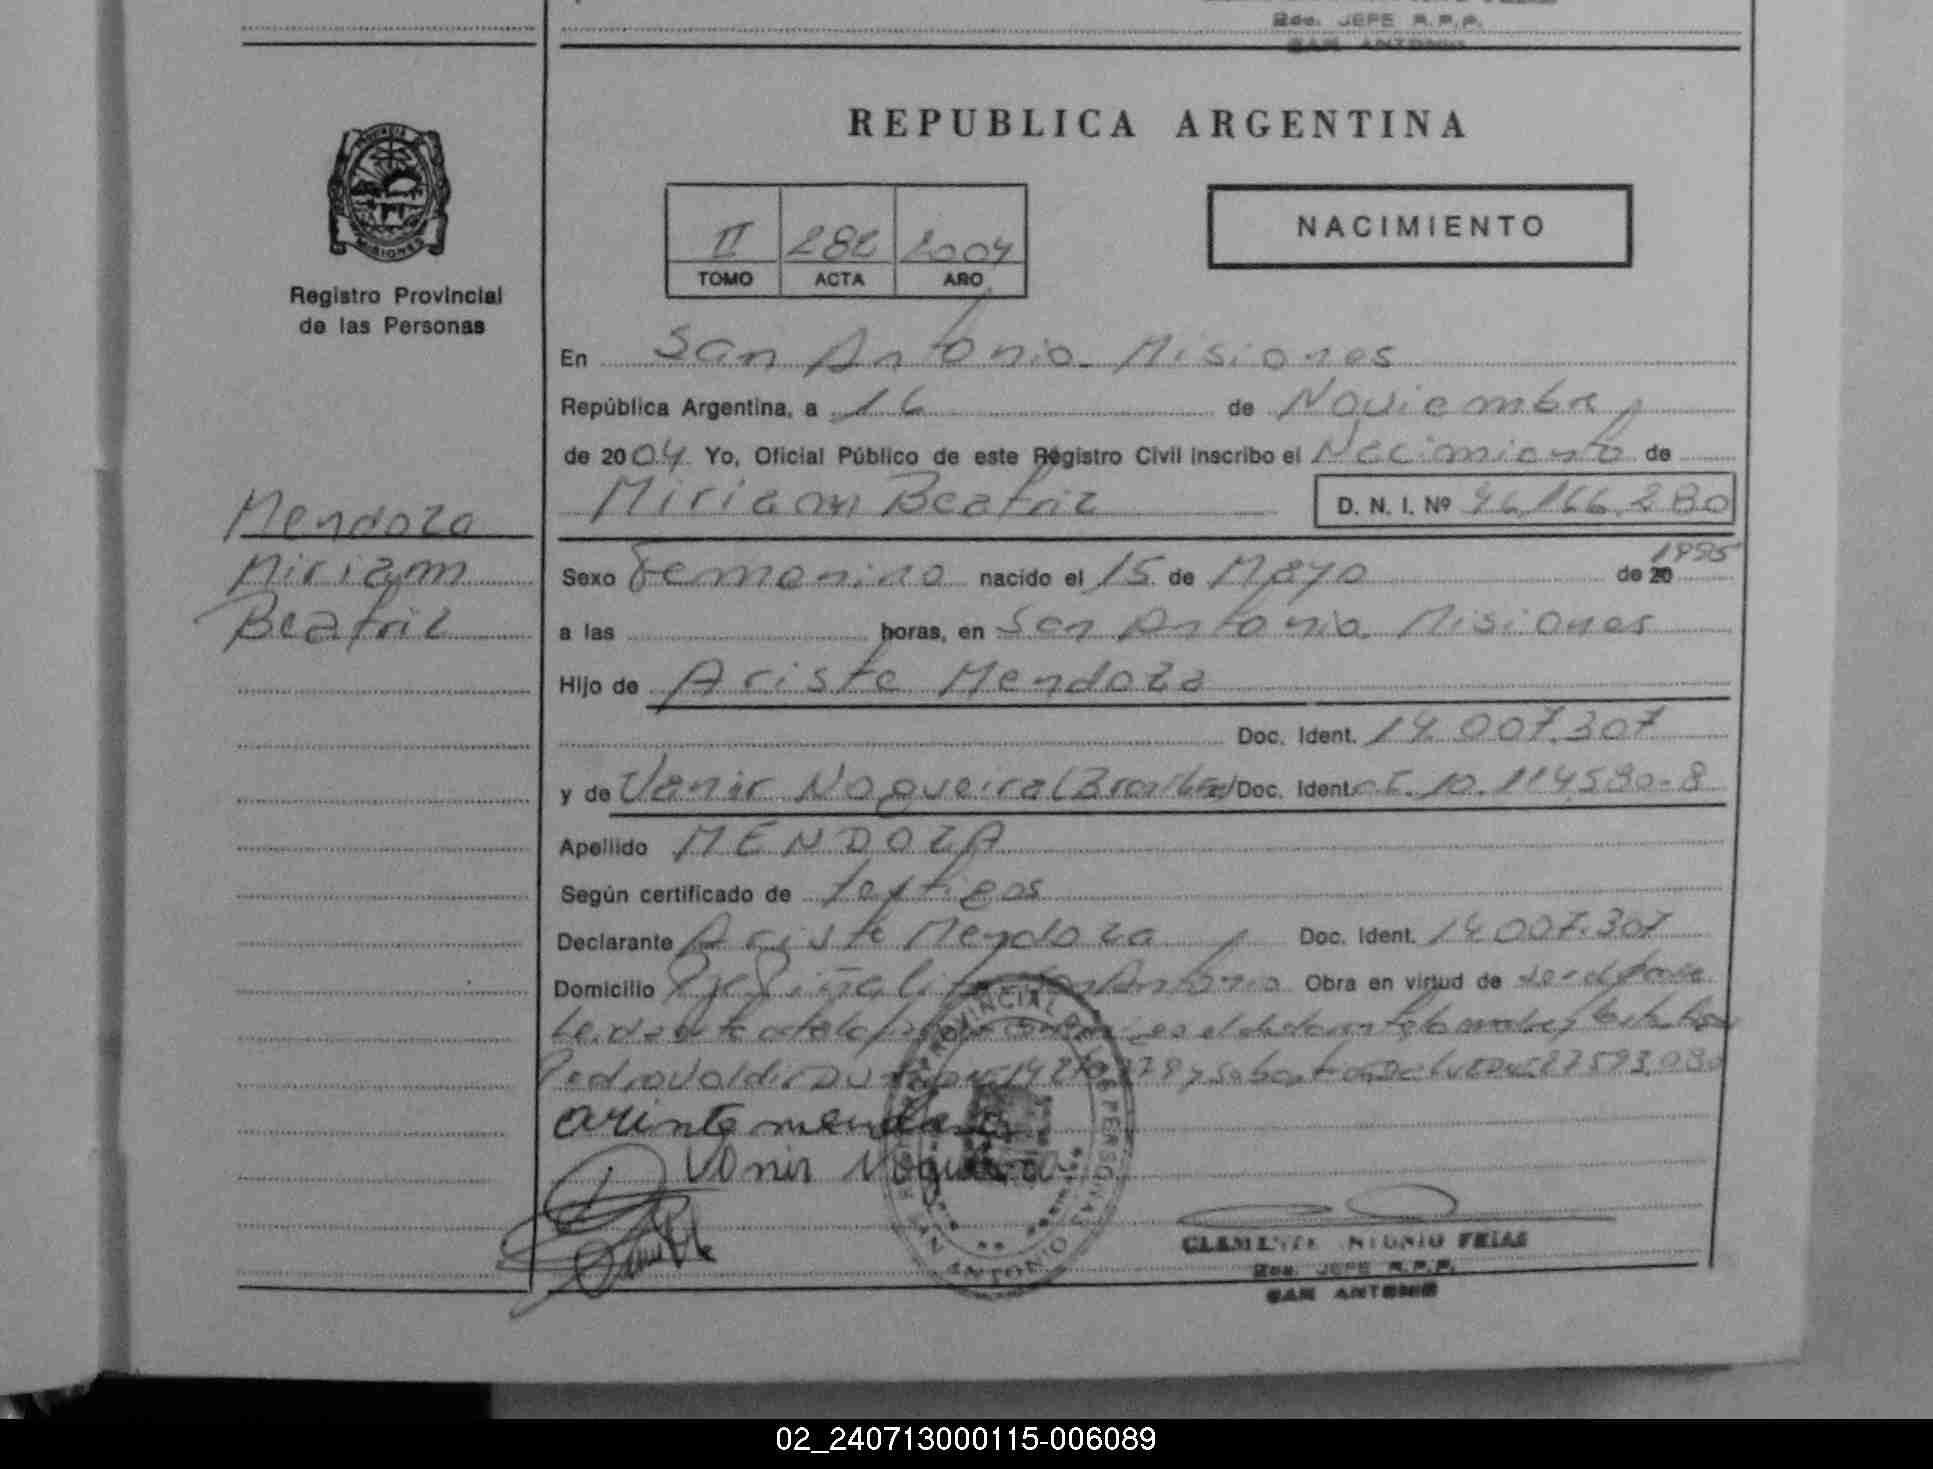 Bdo. JEFE R.P.P.
SAN ANTONIO
REPUBLICA ARGENTINA
PROVINCIA
MISIONES
Registro Provincial
de las Personas
II 282 2004
TOMO ACTA AÑO
NACIMIENTO
En San Antonio Misiones
República Argentina, a 16 de Noviembre
de 2004 Yo, Oficial Público de este Registro Civil inscribo el Nacimiento de
Miriam Beatriz D. N. I. Nº 46.166.280
Mendoza
Miriam
Beatriz
Sexo Femenino nacido el 15 de Mayo de 20 1995
a las horas, en San Antonio Misiones
Hijo de Ariste Mendoza
Doc. Ident. 14.007.307
y de Vanir Nogueira (Brasilera) Doc. Ident. C.I. 10.114.580-8
Apellido MENDOZA
Según certificado de testigos
Declarante Ariste Mendoza Doc. Ident. 14.007.307
Domicilio San Antonio Obra en virtud de ser el padre
Leida el acta la firman el declarante la madre y testigos
Pedro Valdir y 27.593.080
arinte mendoza
Vanir Nogueira
PROVINCIAL DE LAS PERSONAS
SAN ANTONIO
CLEMENTE ANTONIO FRIAS
Bdo. JEFE R.P.P.
SAN ANTONIO
02_240713000115-006089